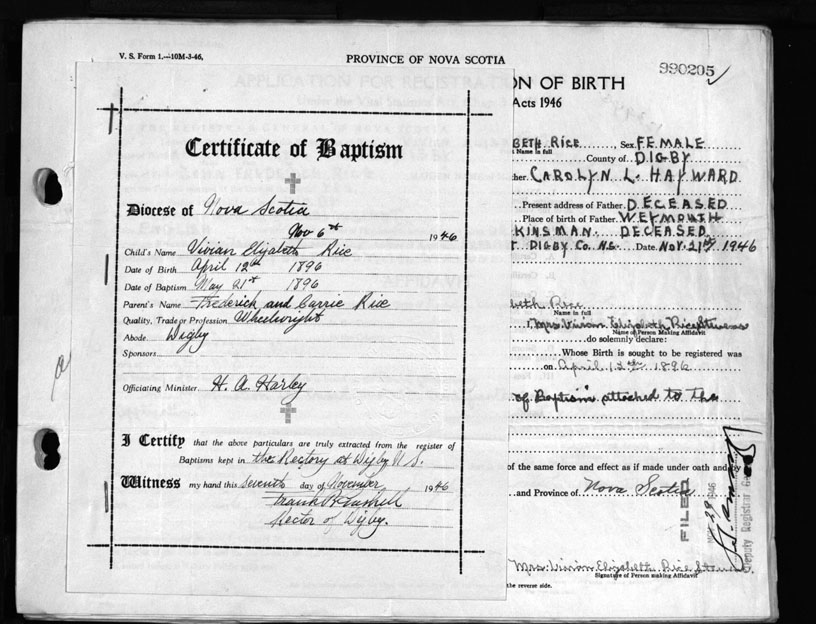 V. S. Form 1.—10M-3-46.
PROVINCE OF NOVA SCOTIA
990205
ON OF BIRTH
Acts 1946
Certificate of Baptism
Diocese of Nova Scotia
Nov 6th 1946
Child's Name Vivian Elizabeth Rice
Date of Birth April 12th 1896
Date of Baptism May 21st 1896
Parent's Name Frederick and Carrie Rice
Quality, Trade or Profession Wheelwright
Abode Digby
Sponsors
Officiating Minister H. A. Harley
I Certify that the above particulars are truly extracted from the register of
Baptisms kept in the Rectory at Digby N.S.
Witness my hand this seventh day of November 1946
Rector of Digby.
BETH RICE, Sex FEMALE
Name in full
County of DIGBY
ther CAROLYN L. HAYWARD
Present address of Father DECEASED
Place of birth of Father WEYMOUTH
KINSMAN. DECEASED
DIGBY CO. N.S. Date NOV. 21st 1946
beth Rice
Name in full
I, Mrs. Vivian Elizabeth Rice
Name of Person Making Affidavit
do solemnly declare:
Whose Birth is sought to be registered was
on April 12th 1896
of Baptism attached to the
of the same force and effect as if made under oath and by
and Province of Nova Scotia
FILED
1946
Deputy Registrar
Mrs. Vivian Elizabeth Rice
Signature of Person making Affidavit
the reverse side.